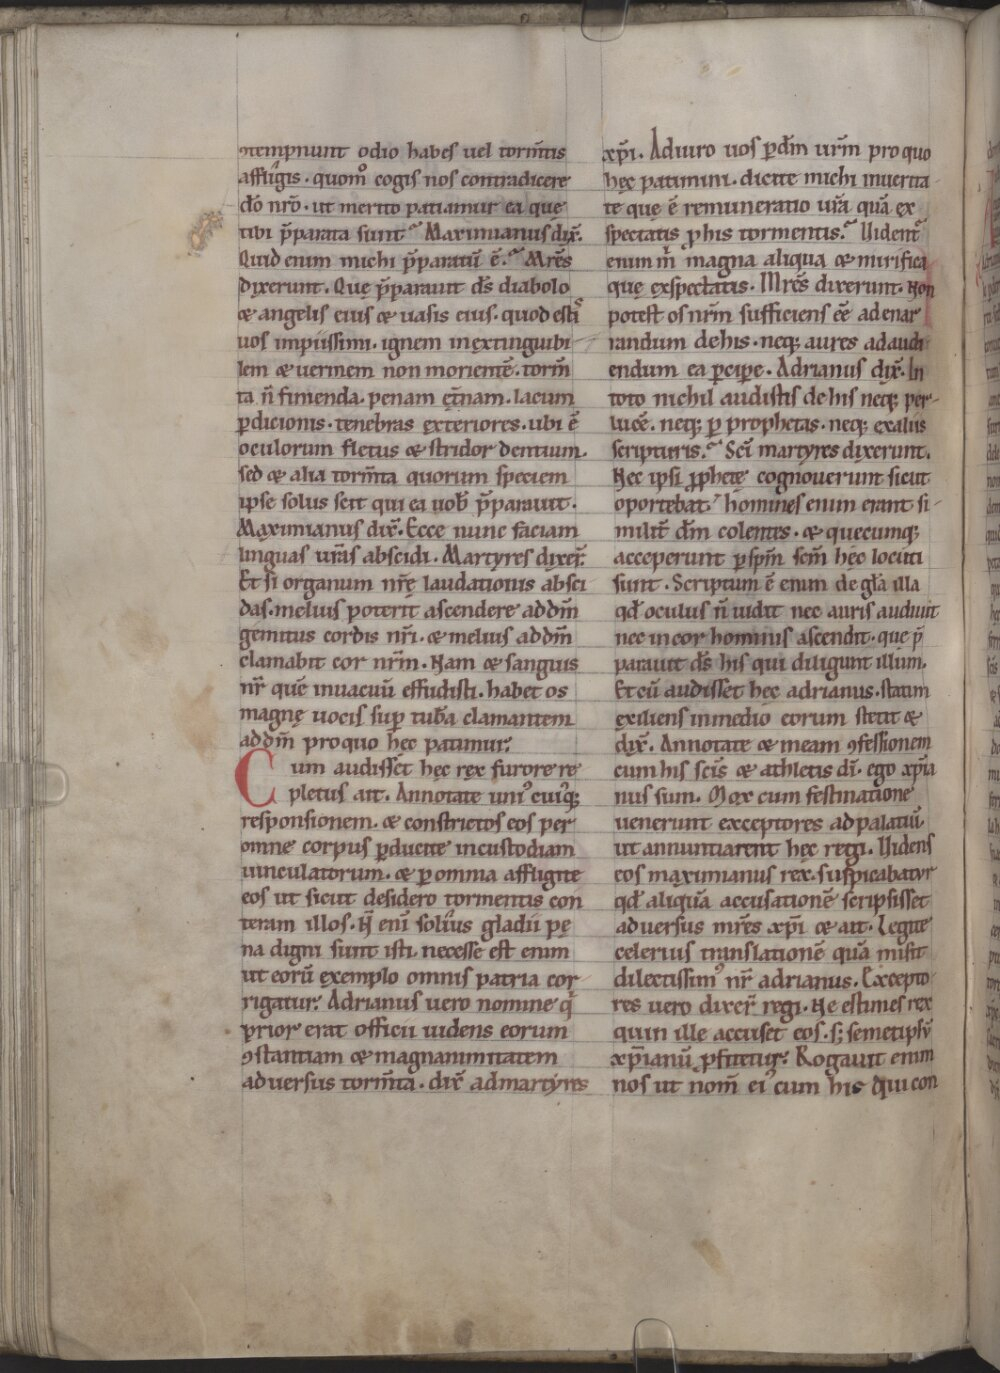 ꝯtempnunt odio habes uel torm̄tis
affligis · quom̊ cogis nos contradicere
dō nr̄o · ut merito patiamur ea que
tibi p̄parata sunt · Maximianus dix̄.
Quid enim michi p̄paratū ē · Mr̄es
dixerunt . Que p̄parauit d̄s diabolo
& angelis eius & uasis eius · quod estis
uos impiissimi · ignem inextinguibi
lem & uermem non morientē · torm̄
ta n̄ finienda · penam et̄nam · lacum
ꝑdicionis · tenebras exteriores · ubi ē
oculorum fletus & stridor dentium ·
sed & alia torm̄ta quorum speciem
ipse solus scit qui ea uob̄ p̄parauit ·
Maximianus dix̄ · Ecce nunc faciam
linguas ur̄as abscidi · Martyres dixer̄
Et si organum nr̄ę laudationis absci
das · melius poterit ascendere ad dm̄
gemitus cordis nr̄i · & melius ad dm̄
clamabit cor nr̄m · Nam & sanguis
nr̄ quē inuacuū effudisti · habet os
magnę uocis sup̄ tubā clamantem
ad dm̄ pro quo hęc patimur.
Cum audisset hęc rex furore re
pletus ait . Annotate uni᾽cui᾽q;
responsionem · & constrictos eos per
omne corpus ꝑducite in custodiam
uinculatorum · & ꝑ omnia affligite
eos ut sicut desidero tormentis con
teram illos · N̄ enī solius gladii pę
na digni sunt isti · necesse est enim
ut eorū exemplo omnis patria cor
rigatur. Adrianus uero nomine q̄
prior erat officii uidens eorum
ꝯstantiam & magnanimitatem
aduersus torm̄ta · dix̄ ad martyres
xp̄i · Adiuro uos ꝑ dm̄ urm̄ pro quo
hęc patimini · dicite michi in uerita
te que ē remuneratio ur̄a quā ex
spectatis ꝓ his tormentis · Uident᾽
enim m̄ magna aliqua & mirifica
quę exspectatis · Mr̄es dixerunt · Non
potest os nr̄m sufficiens eē ad enar
randum de his · neq; aures ad audi
endum ea ꝑcipe · Adrianus dix̄ · In
toto nichil audistis de his neq; per
lucē · neq; ꝑ prophetas · neq; ex aliis
scripturis · Sc̄i martyres dixerunt ·
Nec ipsi ꝓphetę cognouerunt sicut
oportebat · homines enim erant si
milit̄ dm̄ colentes · & quecumq;
acceperunt ꝑ sp̄m sc̄m hęc locuti
sunt · Scriptum ē enim de gl̄a illa
qd̄ oculus n̄ uidit nec auris audiuit
nec in cor hominis ascendit · que p̄
parauit d̄s his qui diligunt illum ·
Et cū audisset hęc adrianus · statim
exiliens in medio eorum stetit &
dix̄ · Annotate & meam ꝯfessionem
cum his sc̄is & athletis dī · ego xp̄ia
nus sum · Mox cum festinatione
uenerunt exceptores ad palatiū ·
ut annuntiarent hęc regi · Uidens
eos maximianus rex · suspicabatur
qd̄ aliquā accusationē scripsisset
aduersus mr̄es xp̄i & ait · Legite
celerius translationē quā misit
dilectissim᾽ nr̄ adrianus · Excepto
res uero dixer̄ regi · Ne estimes rex
quin ille accuset eos · s; semetipsū
xp̄ianū ꝓfitetur. Rogauit enim
nos ut nom̄ ei᾽ cum his qui con